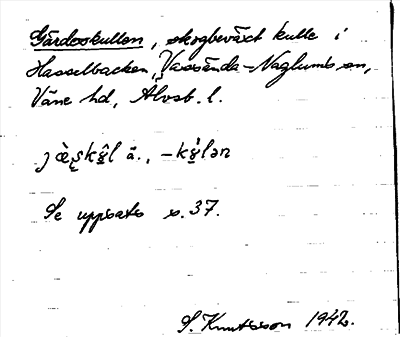 Gärdeskullen, skogbeväxt kulle i
Hasselbacken, Vassända-Naglums sn,
Väne hd, Älvsb. l.
ȷæ̀ʂkŷl ä., -kỳlən
Se uppsats s. 37.
S. Knutsson 1942.